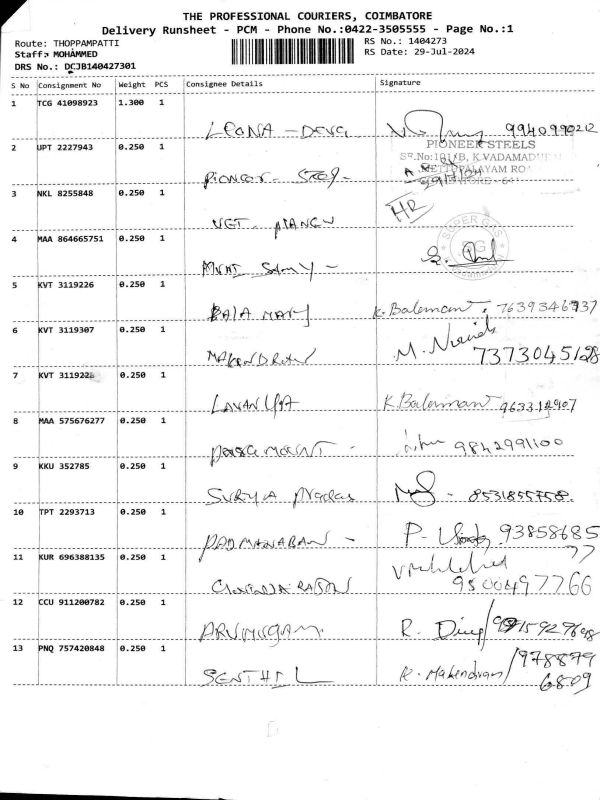 THE PROFESSIONAL COURIERS, COIMBATORE
Delivery Runsheet - PCM - Phone No.:0422-3505555 - Page No.:1
Route: THOPPAMPATTI RS No.: 1404273
Staff: MOHAMMED RS Date: 29-Jul-2024
DRS No.: DCJB140427301
S No Consignment No Weight PCS Consignee Details Signature
1 TCG 41098923 1.300 1
LEONA - 9940990212
2 UPT 2227943 0.250 1
PIONEER STEELS
Pioneer - Steel -
3 NKL 8255848 0.250 1
HR
4 MAA 864665751 0.250 1
SUPER GAS
5 KVT 3119226 0.250 1
BALA K. Balamani 7639346937
6 KVT 3119307 0.250 1
M. 7373045128
7 KVT 311922 0.250 1
LAVANYA K. Balamani
8 MAA 575676277 0.250 1
9842991100
9 KKU 352785 0.250 1
SURYA - 8531855758
10 TPT 2293713 0.250 1
PADMANABAN - P. 93858685
77
11 KUR 696388135 0.250 1
9500497766
12 CCU 911200782 0.250 1
ARUMUGAM R.
13 PNQ 757420848 0.250 1
SENTHIL R. Mahendran / 978879
6809